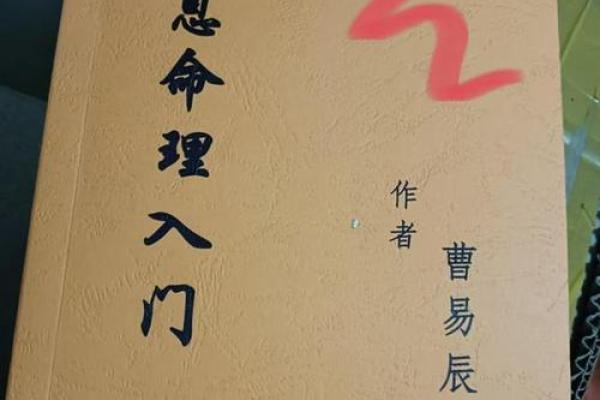 息命理入门
作者
曹易辰